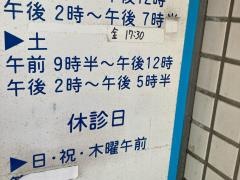 午後 2時～午後 7時半
金 17:30
▶土
午前 9時半～午後12時
午後 2時～午後 5時半
休診日
▶日・祝・木曜午前